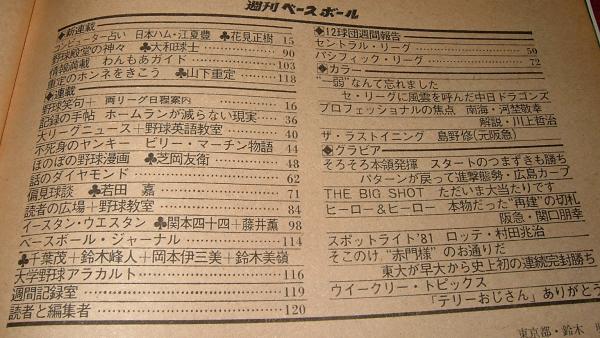 週刊ベースボール
◆新連載
コンピューター占い 日本ハム・江夏豊 ♣花見正樹 15
野球殿堂の神々 ♣大和球士 90
情報満載 わんもあガイド 103
重定のホンネをきこう ♣山下重定 118
◆連載
野球笑句+両リーグ日程案内 16
記録の手帖 ホームランが減らない現実 36
大リーグニュース+野球英語教室 40
不死身のヤンキー ビリー・マーチン物語 44
ほのぼの野球漫画 ♣芝岡友衛 48
話のダイヤモンド 62
偏見球談 ♣若田 嘉 71
読者の広場+野球教室 84
イースタン・ウエスタン ♣関本四十四+藤井薫 98
ベースボール・ジャーナル 114
♣千葉茂+鈴木峰人+岡本伊三美+鈴木美嶺
大学野球アラカルト 116
週間記録室 119
読者と編集者 120
◆12球団週間報告
セントラル・リーグ 50
パシフィック・リーグ 72
◆カラー
“弱”なんて忘れました
セ・リーグに風雲を呼んだ中日ドラゴンズ
プロフェッショナルの焦点 南海・河埜敬幸
解説・川上哲治
ザ・ラストイニング 島野修(元阪急)
◆グラビア
そろそろ本領発揮 スタートのつまずきも勝ち
パターンが戻って進撃態勢・広島カープ
THE BIG SHOT ただいま大当たりです
ヒーロー&ヒーロー 本物だった“再建”の切札
阪急・関口朋幸
スポットライト'81 ロッテ・村田兆治
そこのけ“赤門様”のお通りだ
東大が早大から史上初の連続完封勝ち
ウイークリー・トピックス
「テリーおじさん」ありがとう
東京都・鈴木